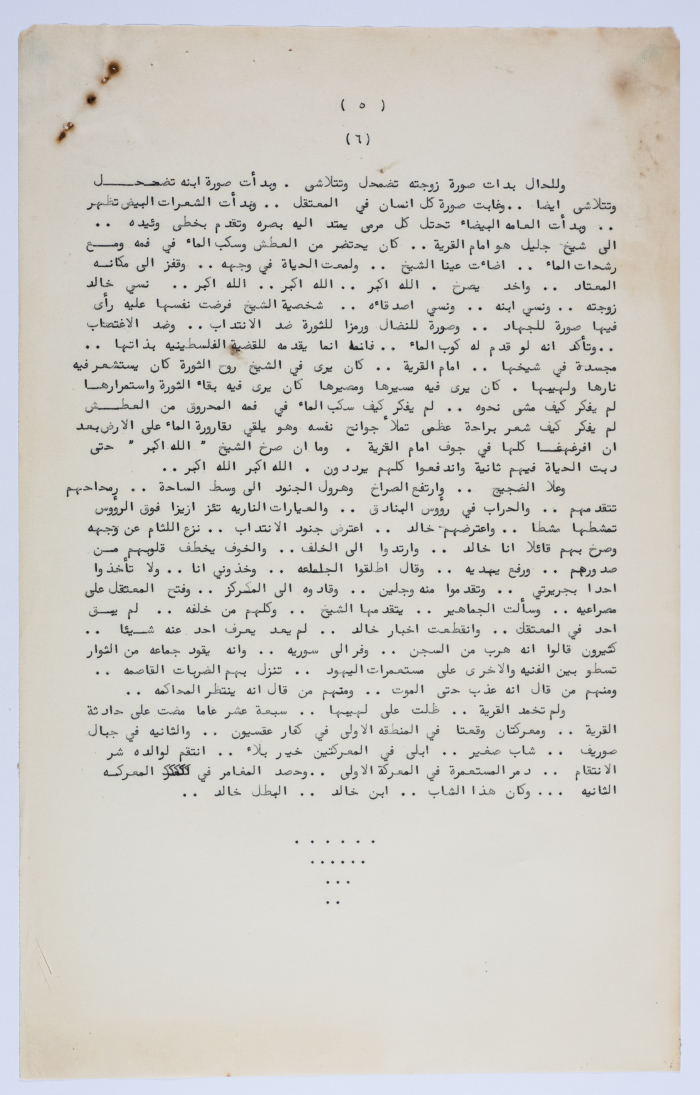 ( ٥ )
(٦)
وللحال بدات صورة زوجته تضمحل وتتلاشى . وبدأت صورة ابنه تضمحل
وتتلاشى ايضا .. وغابت صورة كل انسان في المعتقل .. وبدأت الشعرات البيض تظهر
.. وبدأت العامه البيضاء تحتل كل مرمى يمتد اليه بصره وتقدم بخطى وئيده ..
الى شيخ جليل هو امام القرية .. كان يحتضر من العطش وسكب الماء في فمه ومع
رشحات الماء .. اضاءت عينا الشيخ .. ولمعت الحياة في وجهه .. وقفز الى مكانه
المعتاد .. واخد يصرخ . الله اكبر .. الله اكبر .. الله اكبر .. نسي خالد
زوجته .. ونسي ابنه .. ونسي اصدقاءه .. شخصية الشيخ فرضت نفسها عليه رأى
فيها صورة للجهاد .. وصورة للنضال ورمزا للثورة ضد الانتداب .. وضد الاغتصاب
.. وتأكد انه لو قدم له كوب الماء .. فانما انما يقدمه للقضية الفلسطينيه بذاتها ..
مجسدة في شيخها .. امام القرية .. كان يرى في الشيخ روح الثورة كان يستشعر فيه
نارها ولهيبها . كان يرى فيه مسيرها ومصيرها كان يرى فيه بقاء الثورة واستمرارها
لم يفكر كيف مشى نحوه .. لم يفكر كيف سكب الماء في فمه المحروق من العطش
لم يفكر كيف شعر براحة عظمى تملأ جوانح نفسه وهو يلقي بقارورة الماء على الارض بعد
ان افرغها كلها في جوف امام القرية . وما ان صرخ الشيخ " الله اكبر " حتى
دبت الحياة فيهم ثانية واندفعوا كلهم يرددون . الله اكبر الله اكبر ..
وعلا الضجيج .. وارتفع الصراخ وهرول الجنود الى وسط الساحة .. رماحهم
تتقدمهم .. والحراب في رؤوس البنادق .. والعيارات الناريه تئز ازيزا فوق الرؤوس
تمشطها مشطا .. واعترضهم خالد .. اعترض جنود الانتداب .. نزع اللثام عن وجهه
وصرخ بهم قائلا انا خالد .. وارتدوا الى الخلف .. والخوف يخطف قلوبهم من
صدورهم .. ورفع يديه .. وقال اطلقوا الجماعه .. وخذوني انا .. ولا تأخذوا
احدا بجريرتي .. وتقدموا منه وجلين .. وقادوه الى المركز .. وفتح المعتقل على
مصراعيه .. وسألت الجماهير .. يتقدمها الشيخ .. وكلهم من خلفه .. لم يبق
احد في المعتقل .. وانقطعت اخبار خالد .. لم يعد يعرف احد عنه شيئا ..
كثيرون قالوا انه هرب من السجن .. وفر الى سوريه .. وانه يقود جماعه من الثوار
تسطو بين الفنيه والاخرى على مستعمرات اليهود .. تنزل بهم الضربات القاصمه ..
ومنهم من قال انه عذب حتى الموت .. ومنهم من قال انه ينتظر المحاكمه ..
ولم تخمد القرية .. ظلت على لهيبها .. سبعة عشر عاما مضت على حادثة
القرية .. ومعركتان وقعتا في المنطقه الاولى في كفار عقسيون .. والثانيه في جبال
صوريف .. شاب صغير .. ابلى في المعركتين خير بلاء .. انتقم لوالده شر
الانتقام .. دمر المستعمرة في المعركة الاولى .. وحصد المغامر في المعركه
الثانيه ... وكان هذا الشاب .. ابن خالد .. البطل خالد ..
. . . . . .
......
...
..